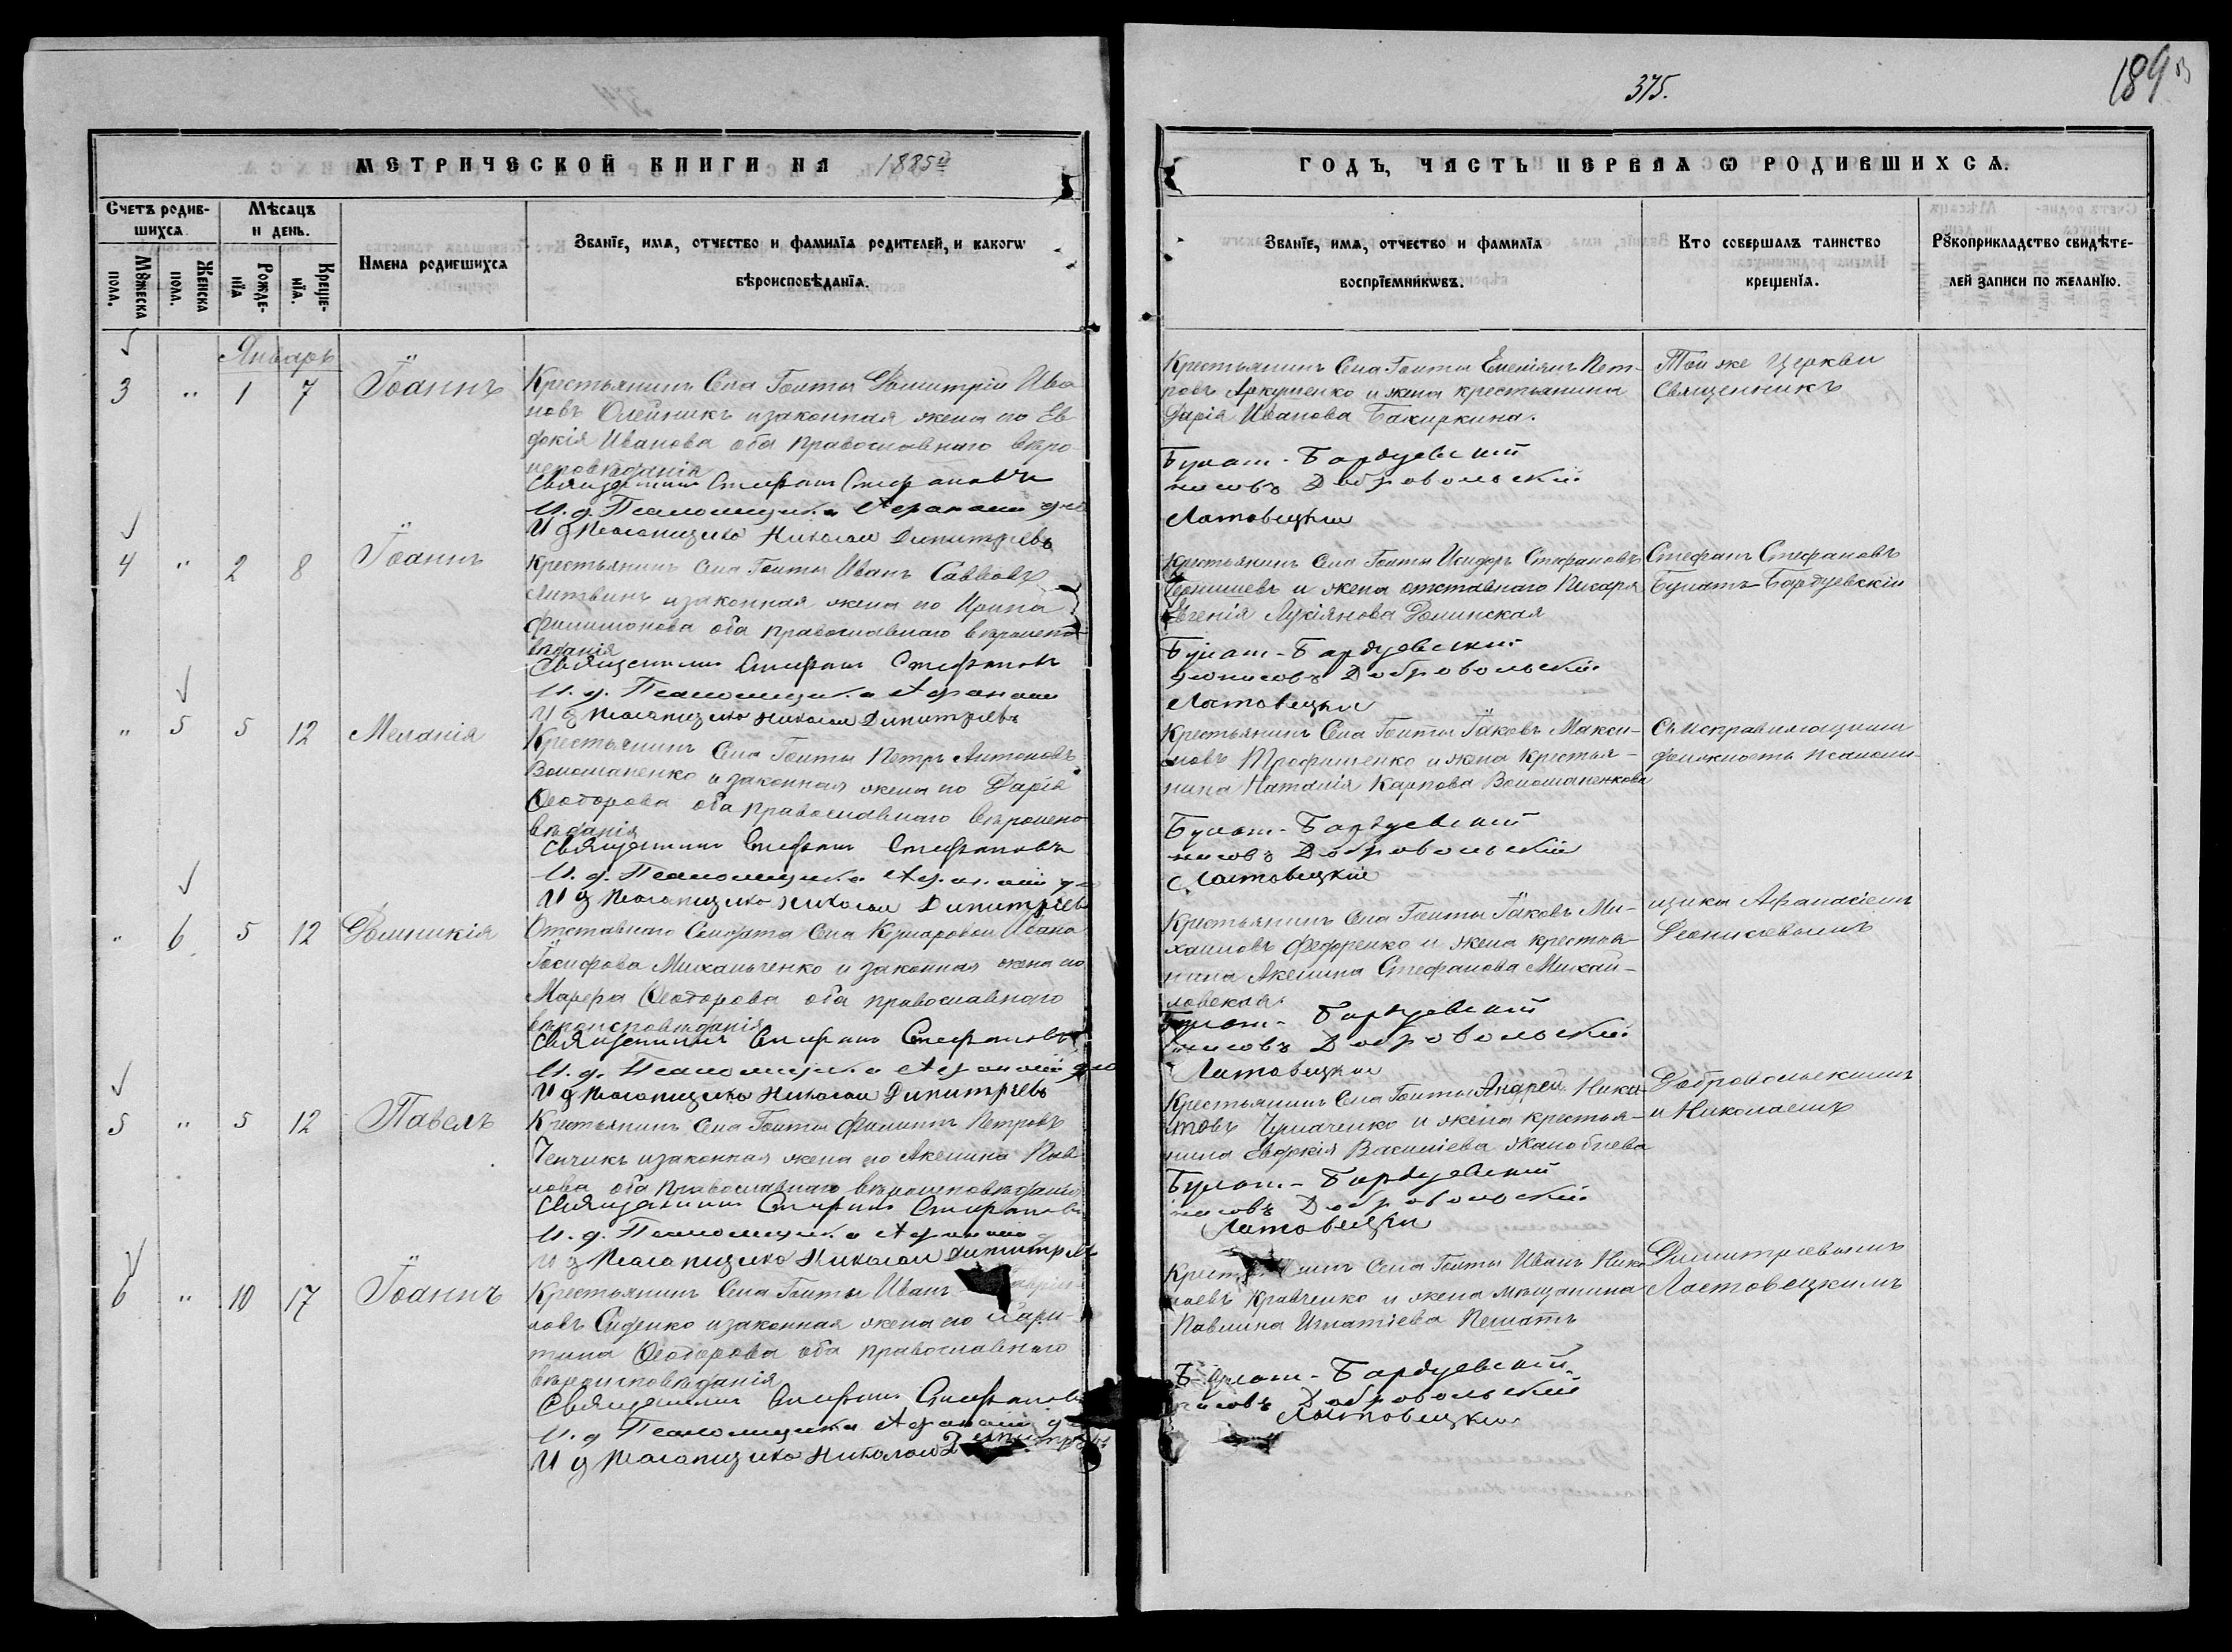 375.
189
МЕТРИЧЕСКОЙ КНИГИ НА 1885й
ГОДЪ, ЧАСТЬ ПЕРВАЯ Ѡ РОДИВШИХСѦ.
Счетъ родив-
шихсѧ
Мѣсѧцъ
и день.
Мꙋжеска
пола.
Женска
пола.
Рожде-
нїѧ
Креще-
нїѧ.
Имена родившихсѧ
Званїе, имѧ, отчество и фамилїѧ родителей, и какогѡ
вѣроисповѣданїѧ.
Званїе, имѧ, отчество и фамилїѧ
воспрїемникѡвъ.
Кто совершалъ таинство
крещенїѧ.
Рꙋкоприкладство свидѣте-
лей записи по желанїю.
Январь
3 " 1 7 Іоаннъ
Крестьянинъ Села Гоиты Димитрій Ива
новъ Олейникъ и законная жена его Ев
докія Иванова оба православнаго вѣро
исповѣданія
Священникъ Стефанъ Стефановъ
И. д. Псаломщика Афанасій
И д Псаломщика Николай Димитріевъ
Крестьянинъ Села Гоиты Емеліянъ Пет-
ровъ Аркушенко и жена крестьянина
Дарія Иванова Бакиркина.
Булат-Бардуевский
нисовъ Добровольскій
Ластовецкий
Той же Церкви
Священникъ
4 " 2 8 Іоаннъ
Крестьянинъ Села Гоиты Иванъ Саввовъ
Литвинъ и законная жена его Ирина
Филимонова оба православнаго вѣроиспо
вѣданія
Священникъ Стефанъ Стефановъ
И. д. Псаломщика Афанасій
И д Псаломщика Николай Димитріевъ
Крестьянинъ Села Гоиты Исидоръ Стефановъ
Чернишевъ и жена отставнаго Писаря
Евгенія Лукіянова Долинская
Булат-Бардуевский
Дионисовъ Добровольскій
Ластовецкий
Стефанъ Стефановъ
Булатъ-Бардуевскій
" 5 5 12 Меланія
Крестьянинъ Села Гоиты Петръ Антоновъ
Волошаненко и законная жена его Дарія
Ѳеодорова оба православнаго вѣроиспо
вѣданія
Священникъ Стефанъ Стефановъ
И. д. Псаломщика Афанасій
И д Псаломщика Николай Димитріевъ
Крестьянинъ Села Гоиты Іаковъ Макси-
мовъ Трофименко и жена крестья-
нина Наталія Карпова Волошаненкова
Булат-Бардуевский
нисовъ Добровольскій
Ластовецкій
Съ исправляющими
должность псалом-
" 6 5 12 Домникія
Отставнаго Села Ивана
Іосифова Михальченко и законная жена его
Марфа Ѳеодорова оба православнаго
вѣроисповѣданія
Священникъ Стефанъ Стефановъ
И. д. Псаломщика Афанасій
И д Псаломщика Николай Димитріевъ
Крестьянинъ Села Гоиты Іаковъ Ми-
хаиловъ Федоренко и жена крестья-
нина Акелина Стефанова Михай-
ловская
Булат-Бардуевский
нисовъ Добровольскій
Ластовецкий
щика Афанасіемъ
Деонисіевымъ
5 " 5 12 Павелъ
Крестьянинъ Села Гоиты Филиппъ Петровъ
Чепчикъ и законная жена его Акелина Пав
лова оба православнаго вѣроисповѣданія
Священникъ Стефанъ Стефановъ
И. д. Псаломщика Афанасій
И д Псаломщика Николай Димитріевъ
Крестьянинъ Села Гоиты Андрей Ники-
товъ Чумаченко и жена крестья-
нина Евдокія Василіева
Булат-Бардуевский
нисовъ Добровольский
Ластовецкий
Добровольскимъ
и Николаемъ
6 " 10 17 Іоаннъ
Крестьянинъ Села Гоиты Иванъ
ловъ Сиденко и законная жена его Хари-
тина Ѳеодорова оба православнаго
вѣроисповѣданія
Священникъ Стефанъ Стефановъ
И. д Псаломщика Афанасій
И д Псаломщика Николай
Крестьянинъ Села Гоиты Иванъ Нико
лаевъ Кравченко и жена мѣщанина
Павлина Игнатіева
Булат-Бардуевский
нисовъ Добровольский
Ластовецкий
Димитріевымъ
Ластовецкимъ